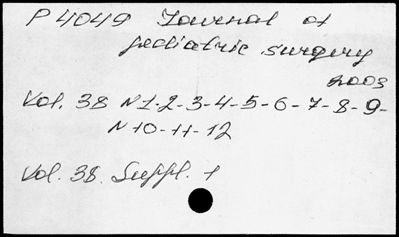 P 4049 Journal of
pediatric surgery
2003
Vol. 38 N 1-2-3-4-5-6-7-8-9-
N 10-11-12
Vol. 38. Suppl. 1